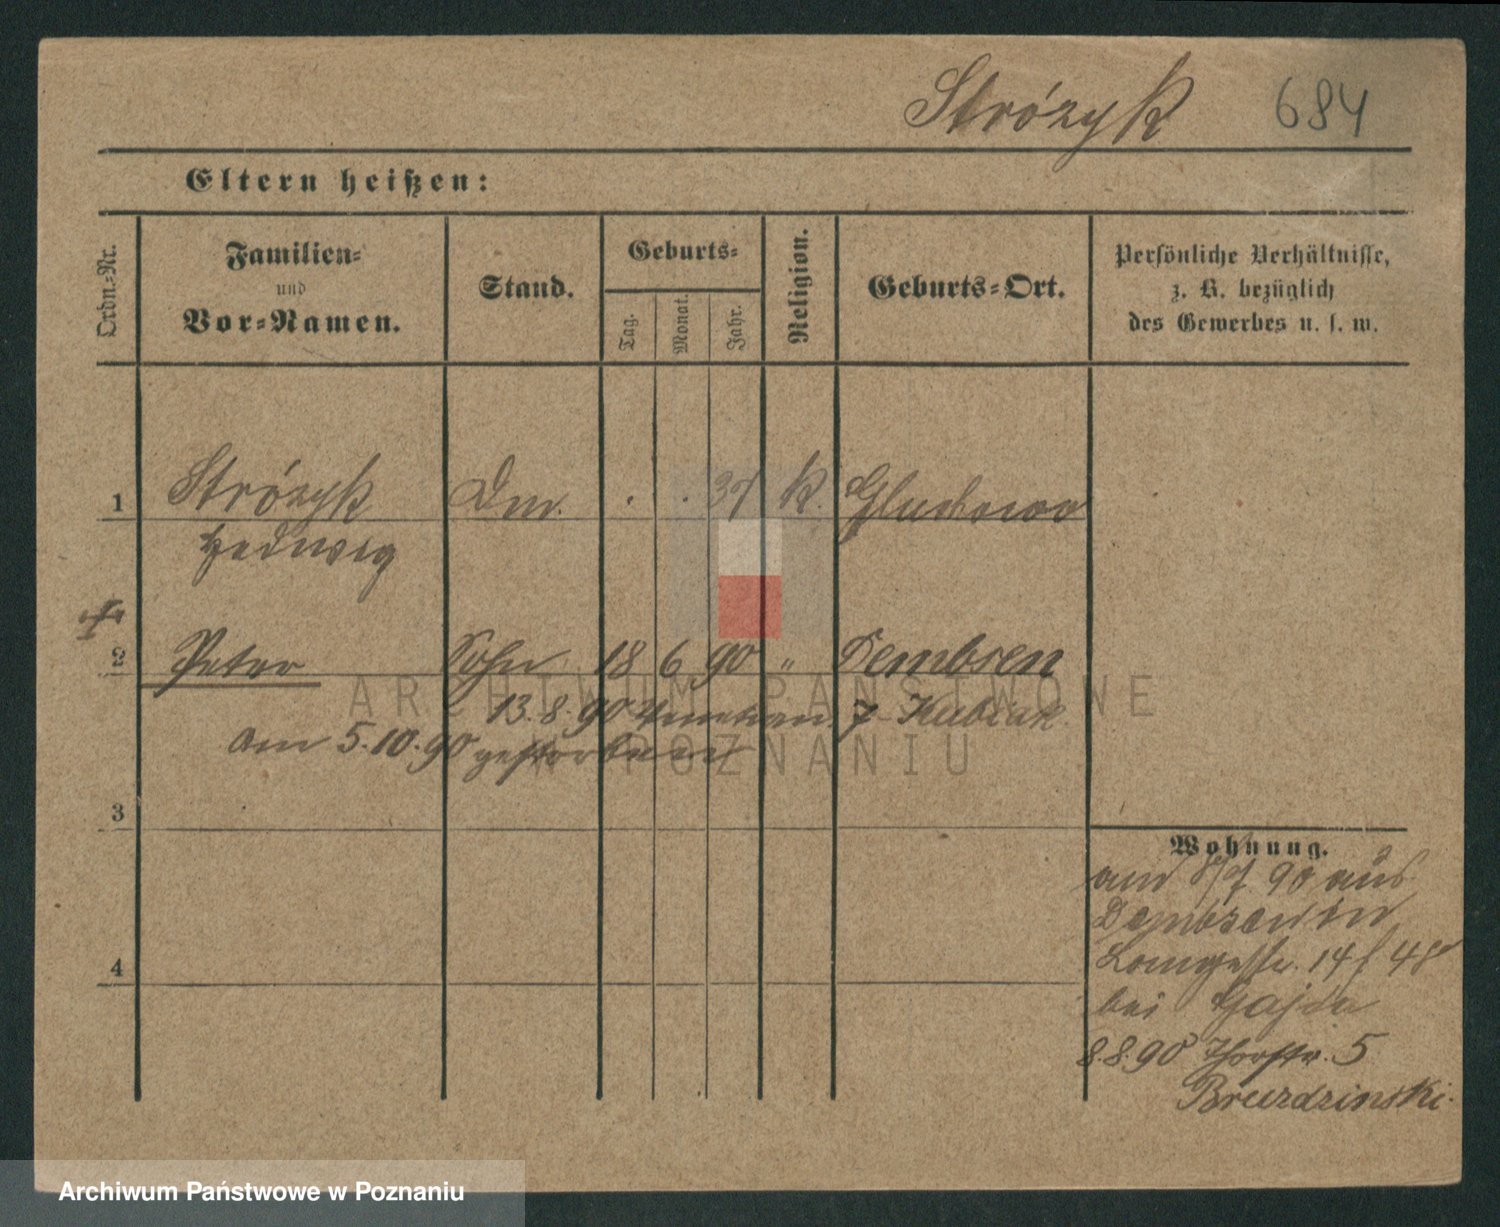 Strózyk 684
Eltern heißen:
Ordn.-Nr.
Familien-
und
Vor-Namen.
Stand.
Geburts-
Tag.
Monat.
Jahr.
Religion.
Geburts-Ort.
Persönliche Verhältnisse,
z. B. bezüglich
des Gewerbes u. s. w.
1 Strózyk Dm. . . K. Gluchowo
Hedwig
2 Peter Sohn 18 6 90 " Dembsen
13.8.90 7 Kubiak
am 5.10.90 gestorben
3
4
Wohnung.
am 90 aus
Dembsen in
Langestr. 14
bei Gajda
8.8.90 Thorstr. 5
Bruzdzinski.
ARCHIWUM PAŃSTWOWE
W POZNANIU
Archiwum Państwowe w Poznaniu